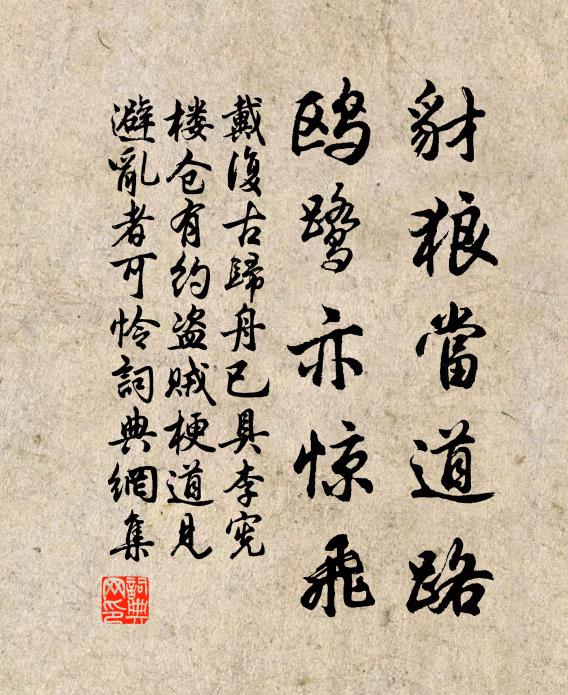 豺狼當道路
鸥鹭亦惊飛
戴復古歸舟已具李宪
楼仓有约盗贼梗道见
避亂者可怜詞典網集
詞典
网印